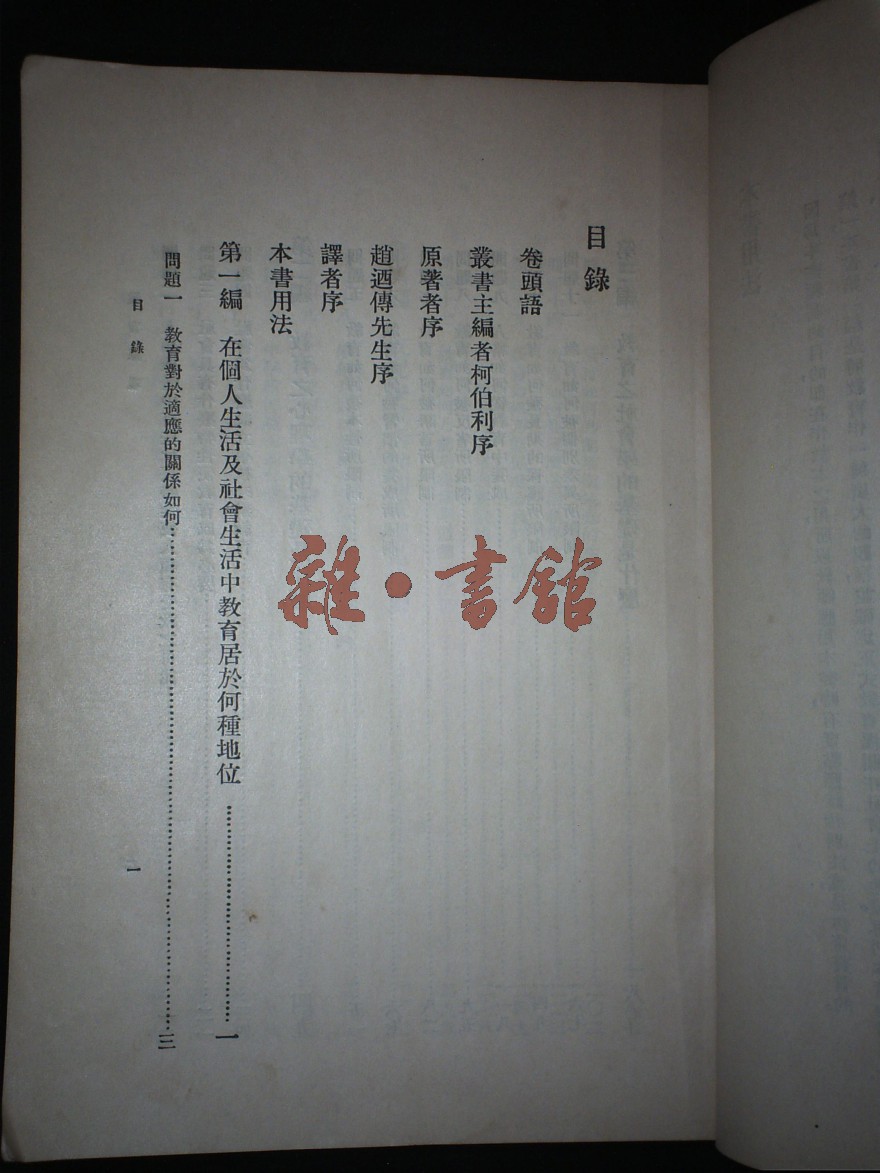 目錄
卷頭語
叢書主編者柯伯利序
原著者序
趙迺傳先生序
譯者序
本書用法
第一編　在個人生活及社會生活中教育居於何種地位……一
問題一　教育對於適應的關係如何……三
目錄
一
雜·書館